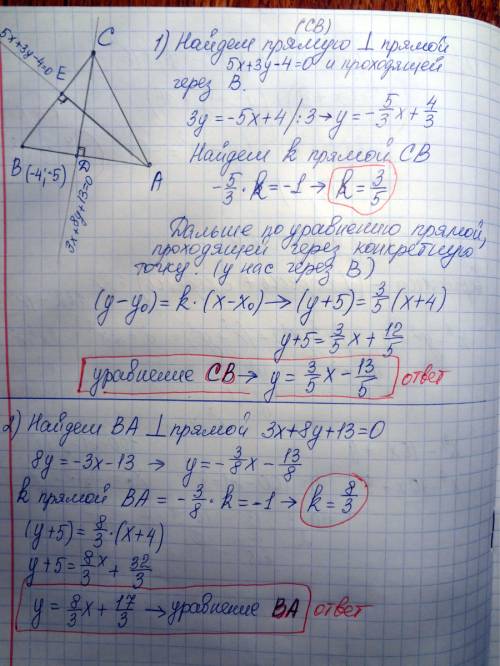 (CB)
1) Найдем прямую ⊥ прямой
5x+3y-4=0 и проходящей
через B.
3y=-5x+4/:3→y=-5/3x+4/3
Найдем k прямой CB
-5/3·k=-1→k=3/5
Дальше по уравнению прямой,
проходящей через конкретную
точку. (у нас через B)
(y-y₀)=k·(x-x₀)→(y+5)=3/5(x+4)
y+5=3/5x+12/5
уравнение CB→y=3/5x-13/5 ответ
5x+3y-4=0
C
E
B(-4;-5)
D
A
3x+8y+13=0
2) Найдем BA⊥прямой 3x+8y+13=0
8y=-3x-13→y=-3/8x-13/8
k прямой BA=-3/8·k=-1→k=8/3
(y+5)=8/3·(x+4)
y+5=8/3x+32/3
y=8/3x+17/3→уравнение BA ответ